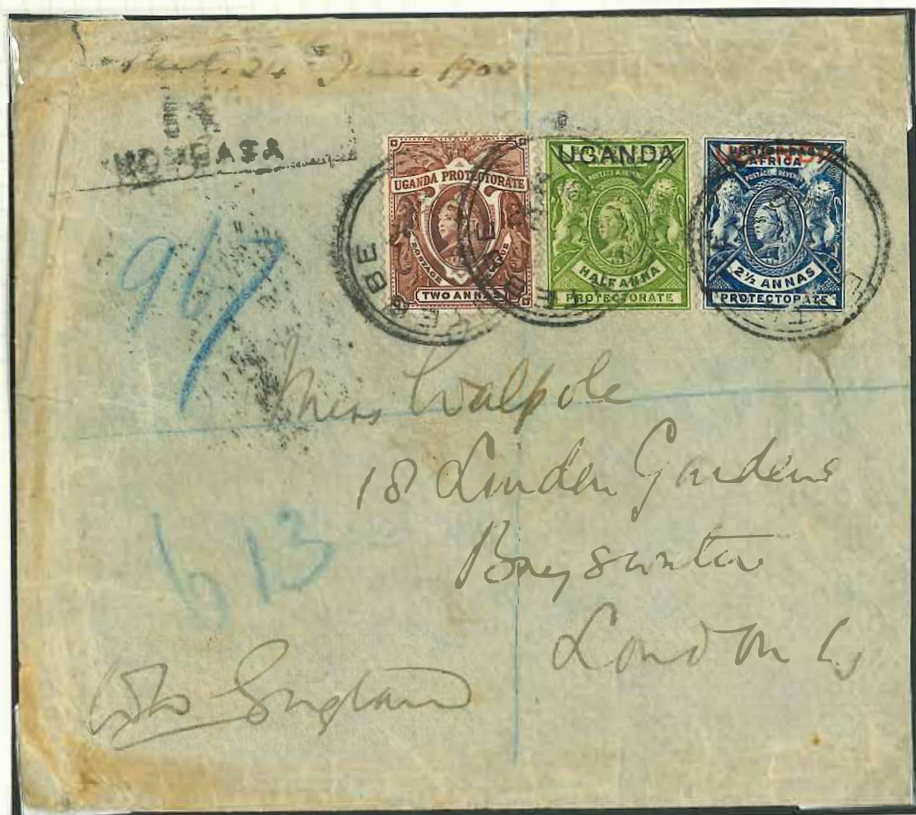 24th June 1902
R
MOMBASA
967
UGANDA PROTECTORATE
POSTAGE
TWO ANNAS
UGANDA
POSTAGE & REVENUE
HALF ANNA
PROTECTORATE
BRITISH EAST
AFRICA
UGANDA
POSTAGE & REVENUE
2½ ANNAS
PROTECTORATE
ENTEBBE
Miss Walpole
18 Linden Gardens
Bayswater
London W
613
England